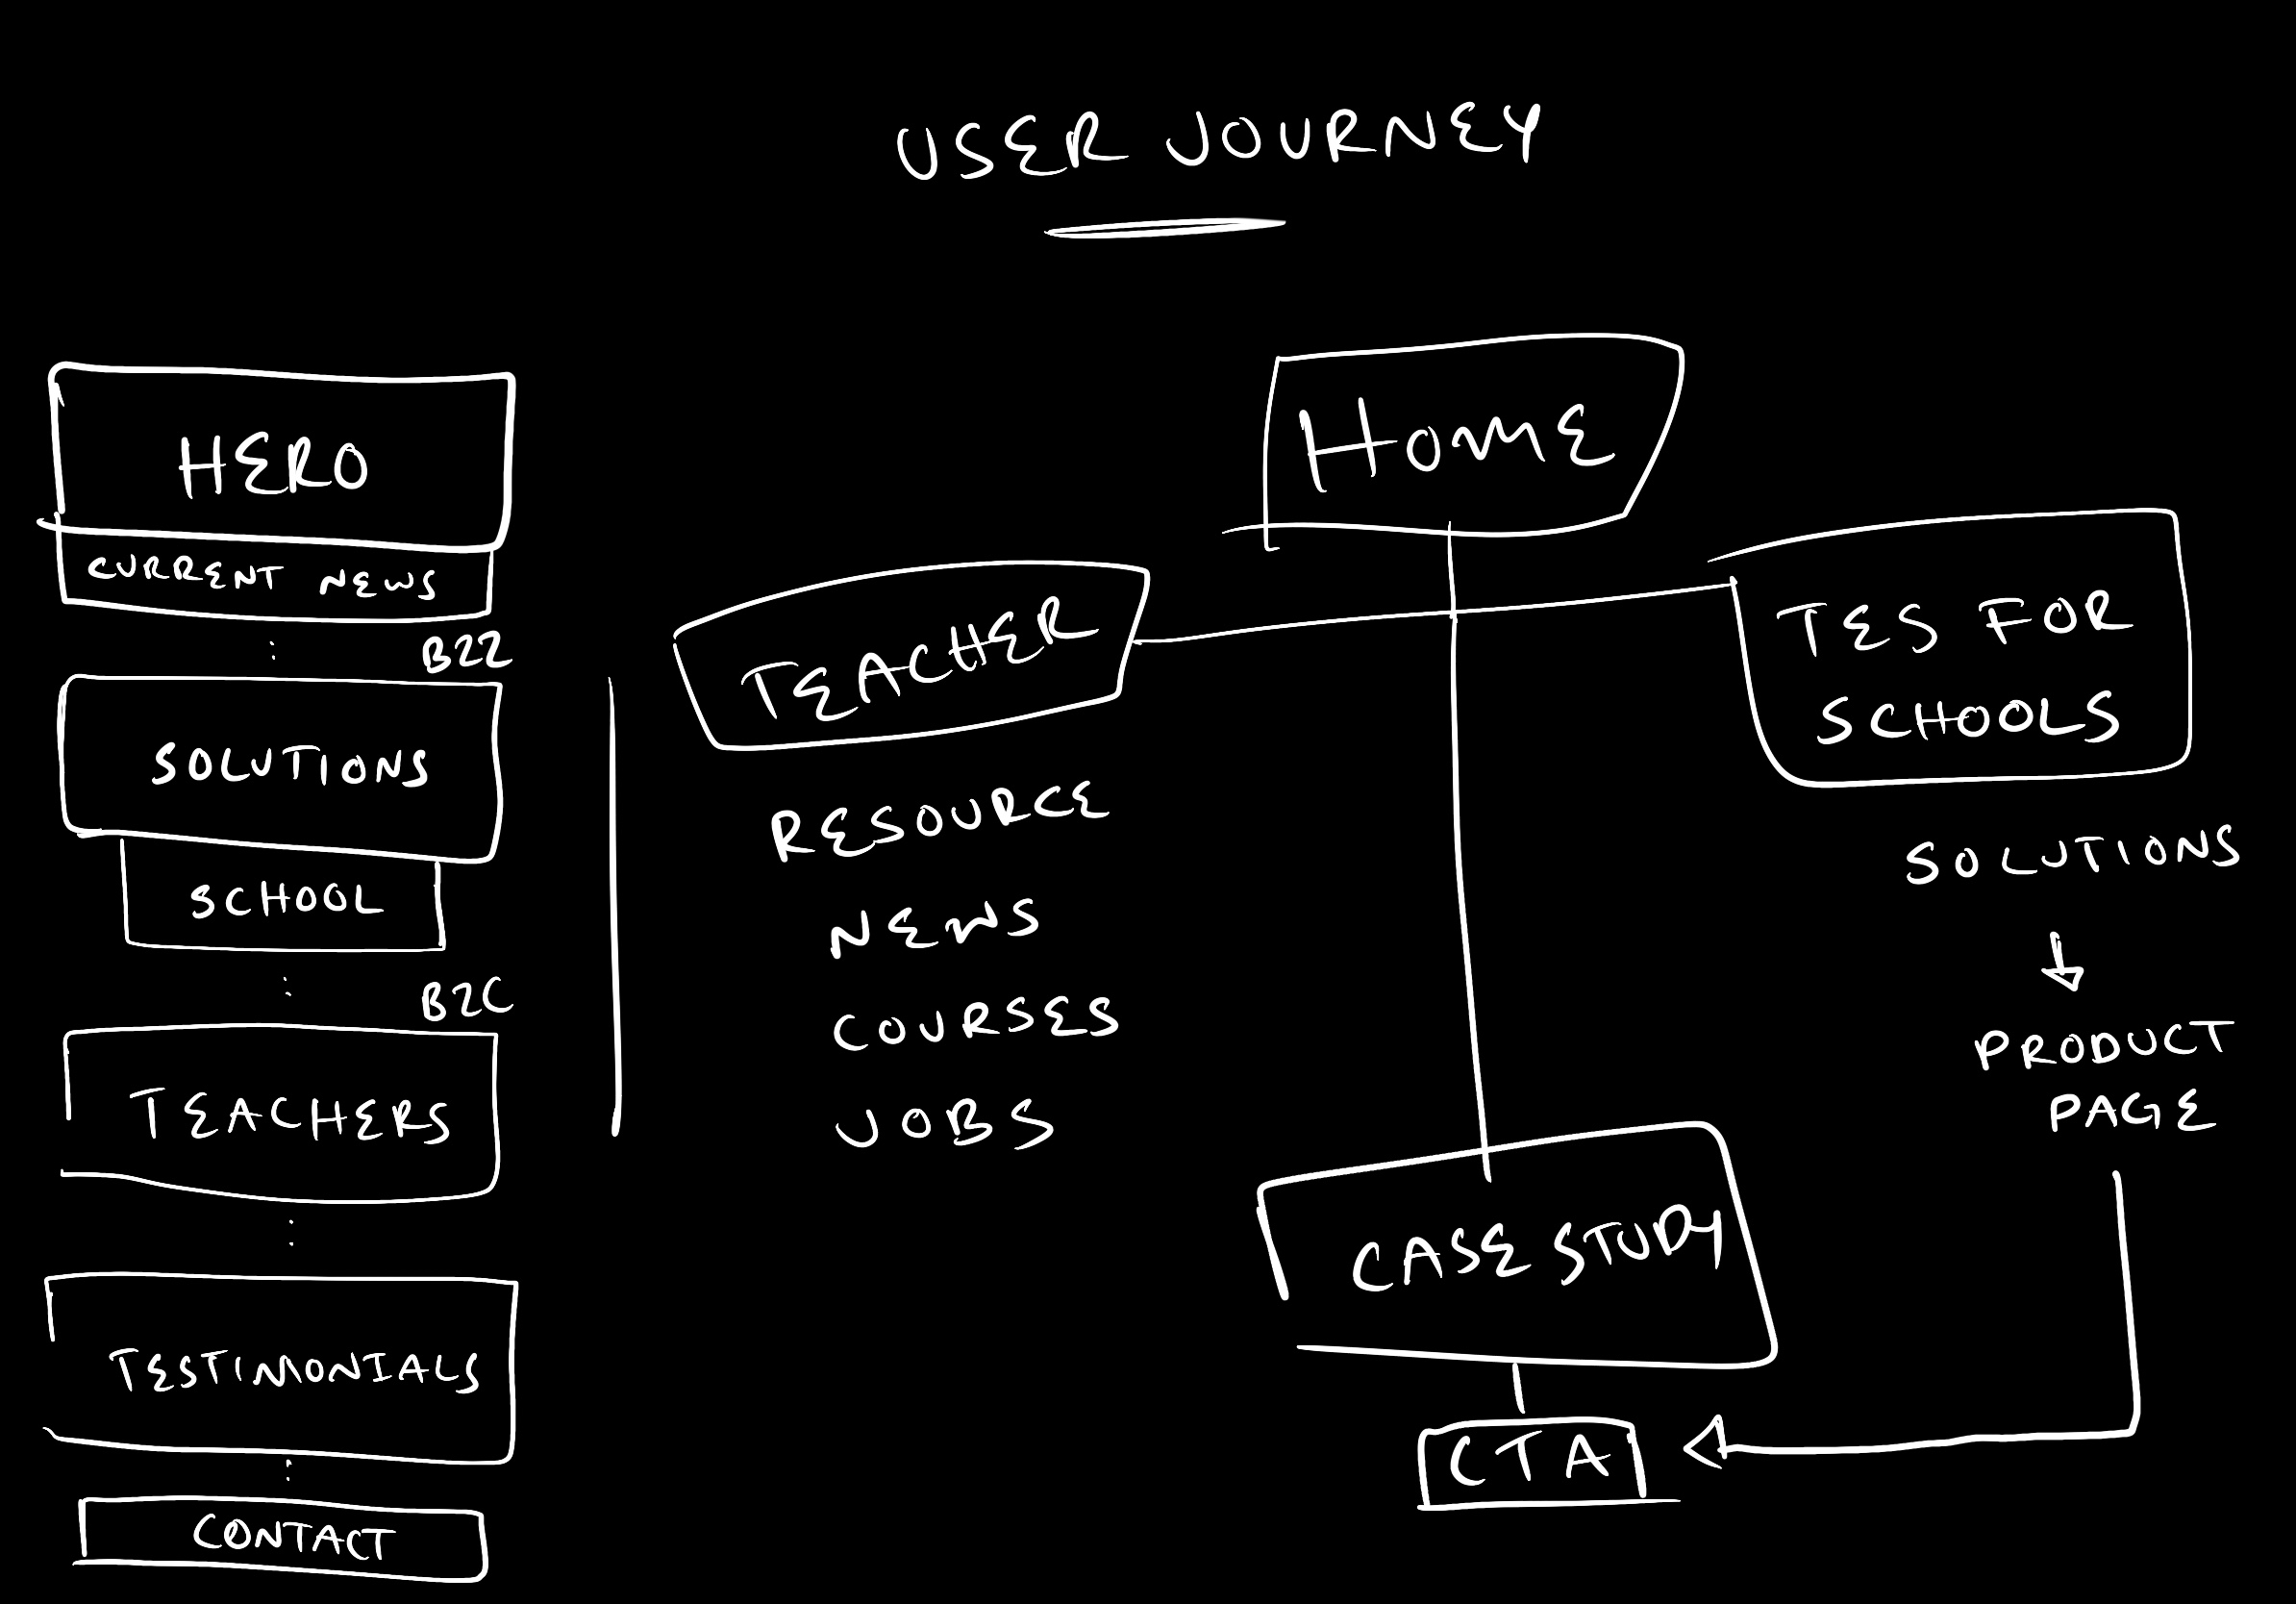 USER JOURNEY
HERO
CURRENT NEWS
B2Z
SOLUTIONS
SCHOOL
B2C
TEACHERS
TESTIMONIALS
CONTACT
HOME
TEACHER
RESOURCE
NEWS
COURSES
JOBS
TES FOR
SCHOOLS
SOLUTIONS
PRODUCT
PAGE
CASE STUDY
CTA